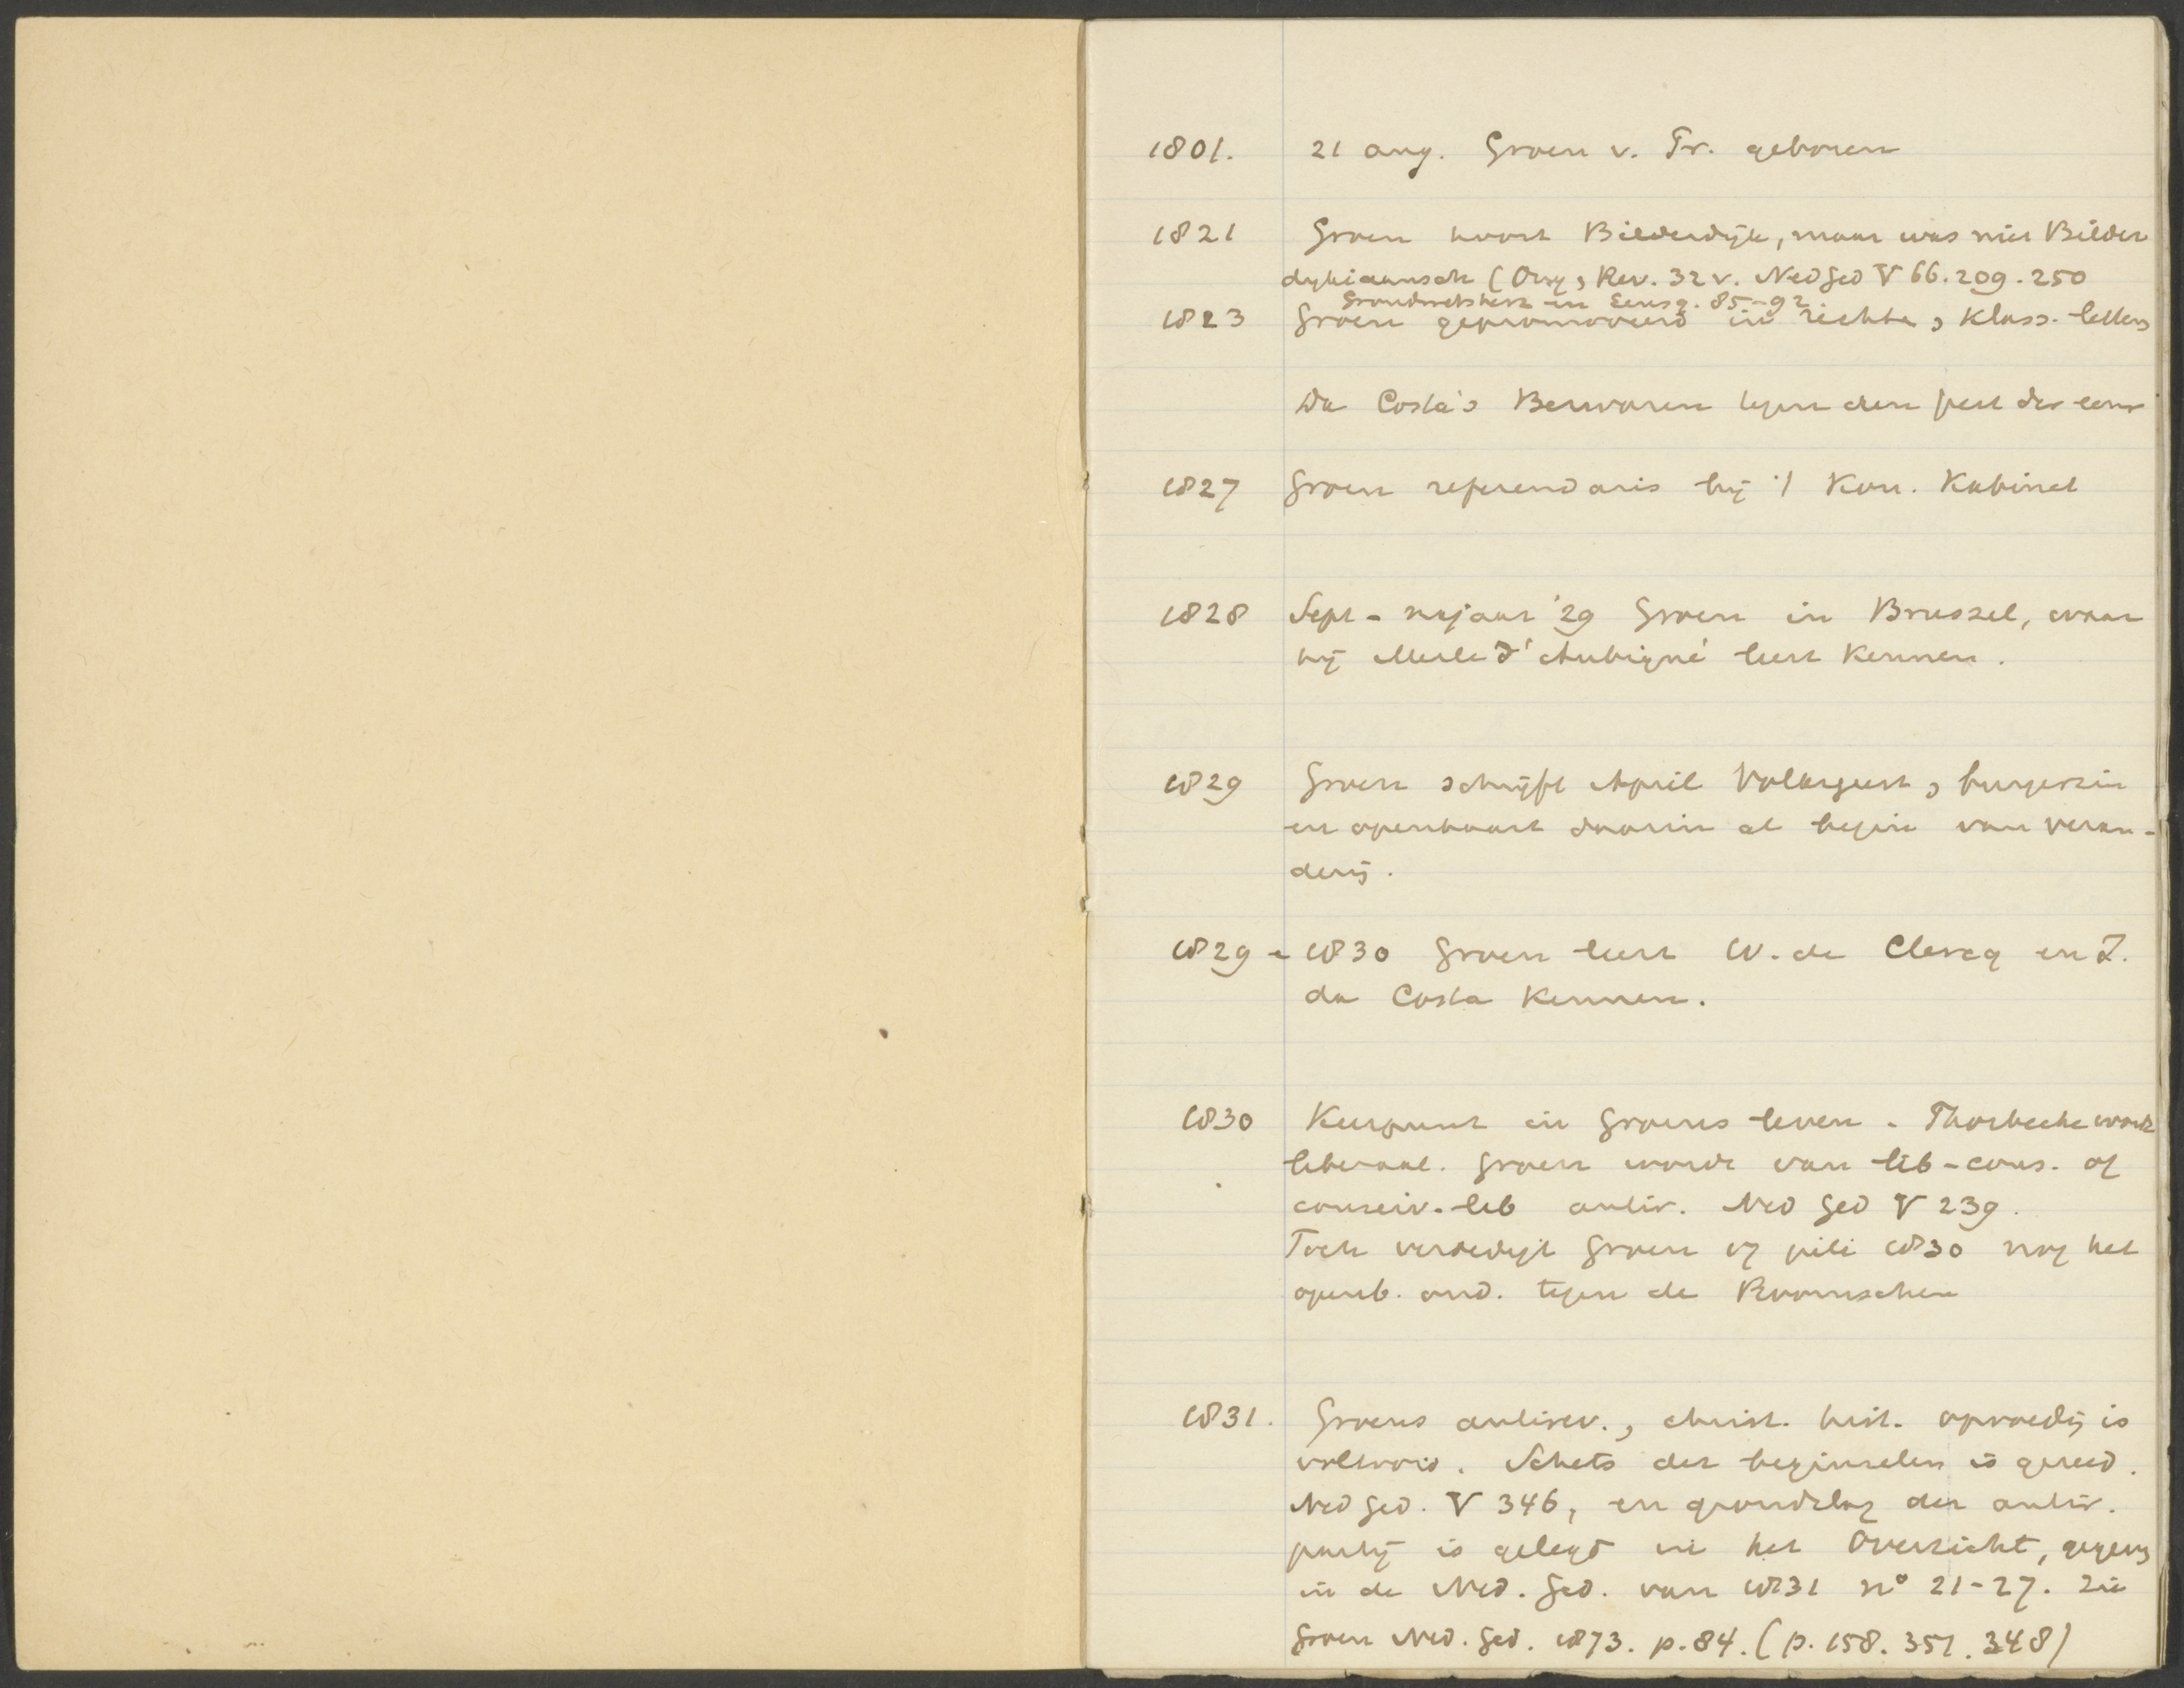 1801. 21 aug. Groen v. Pr. geboren
1821 Groen hoort Bilderdijk, maar was niet Bilder
dykiaansch (Ong, Rev. 32 v. Ned Ged V 66. 209. 250
Grondwetsherz. in Eensg. 85-92.
1823 Groen gepromoveerd in rechten, klass. letters
Da Costa's Bezwaren tegen den geest der eeuw
1827 Groen referendaris bij 't Kon. Kabinet
1828 Sept - najaar '29 Groen in Brussel, waar
hij Merle d'Aubigné leert kennen.
1829 Groen schrijft April Volksgeest, burgerzin
en openbaart daarin al begin van veran-
dering.
1829 - 1830 Groen leert W. de Clercq en I.
da Costa kennen.
1830 Keerpunt in Groens leven. Thorbecke wordt
liberaal. Groen wordt van lib-cons. of
conserv.-lib antir. Ned Ged V 239.
Toch verdedigt Groen juli 1830 nog het
openb. ond. tegen de Roomschen
1831. Groens antirev., christ. hist. opvoeding is
voltooid. Schets der beginselen is gereed.
Ned Ged. V 346, en grondslag der antir.
partij is gelegd in het Overzicht, gegeven
in de Ned. Ged. van 1831 no 21-27. Zie
Groen Ned. Ged. 1873. p. 84. (p. 158. 351. 348)